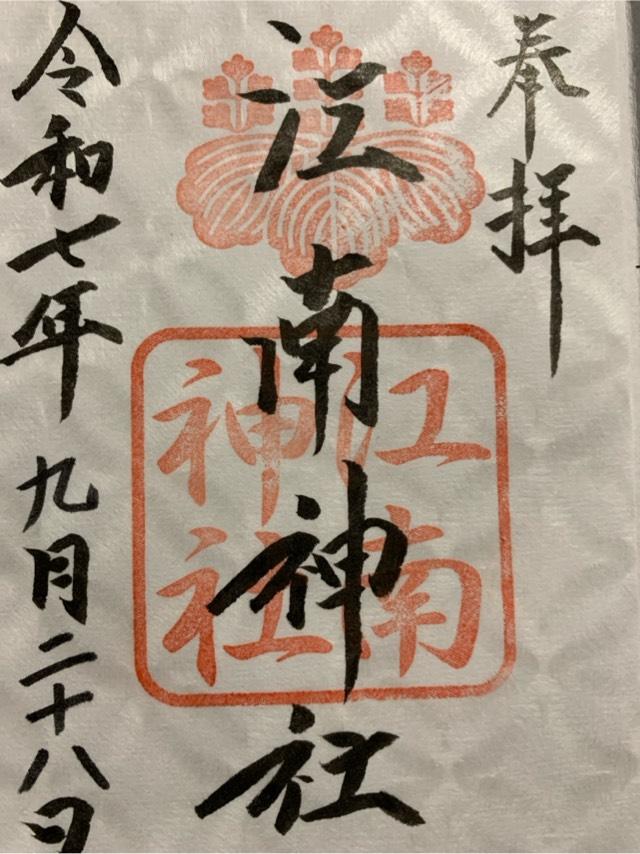 奉拝
江南神社
江南
神社
令和七年九月二十八日